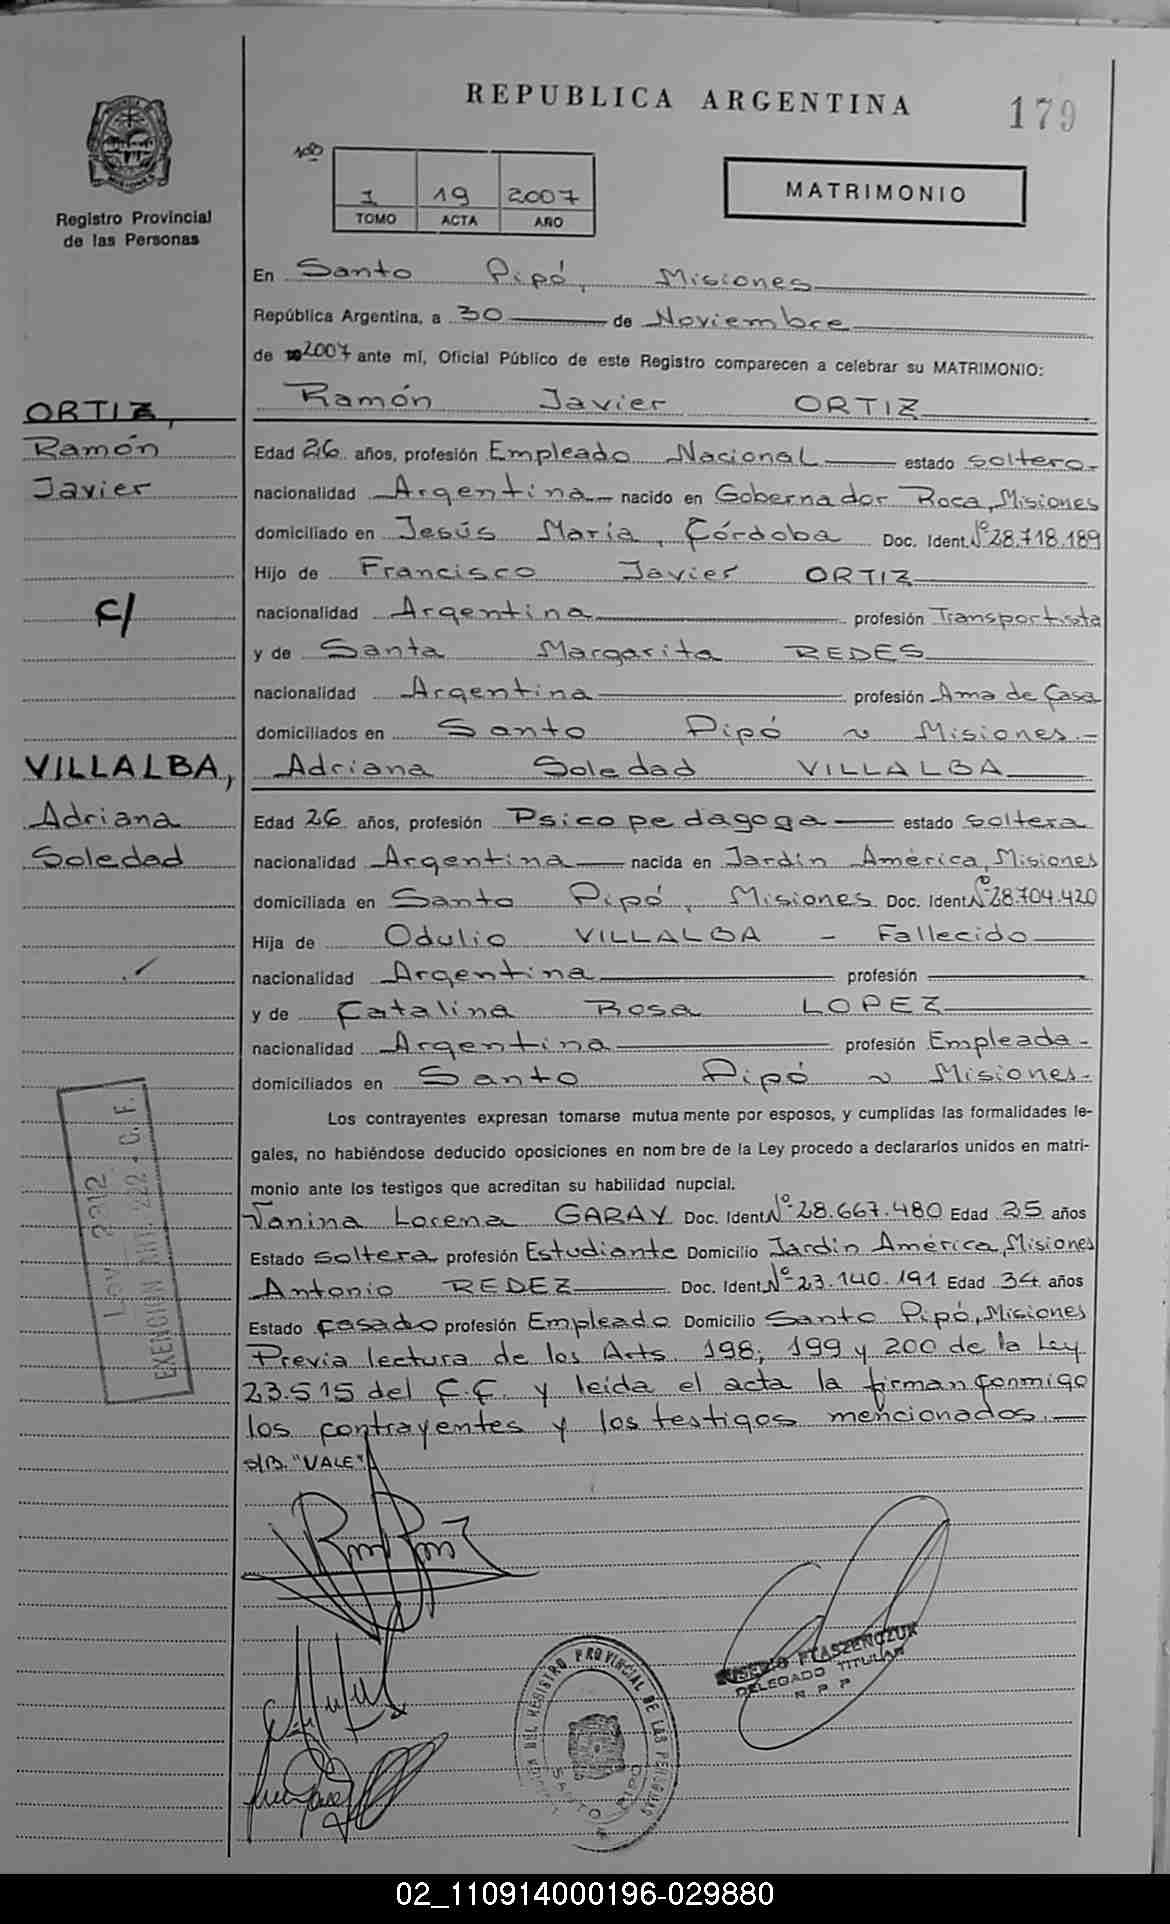 REPUBLICA ARGENTINA
179
Registro Provincial
de las Personas
1 19 2007
TOMO ACTA AÑO
MATRIMONIO
En Santo Pipó, Misiones
República Argentina, a 30 de Noviembre
de 2007 ante mí, Oficial Público de este Registro comparecen a celebrar su MATRIMONIO:
ORTIZ,
Ramón
Javier
C/
VILLALBA,
Adriana
Soledad
Ramón Javier ORTIZ
Edad 26 años, profesión Empleado Nacional estado soltero.
nacionalidad Argentina nacido en Gobernador Roca, Misiones
domiciliado en Jesús María, Córdoba Doc. Ident. Nº 28.718.189
Hijo de Francisco Javier ORTIZ
nacionalidad Argentina profesión Transportista
y de Santa Margarita REDES
nacionalidad Argentina profesión Ama de Casa
domiciliados en Santo Pipó ~ Misiones.-
Adriana Soledad VILLALBA
Edad 26 años, profesión Psicopedagoga estado soltera
nacionalidad Argentina nacida en Jardín América, Misiones
domiciliada en Santo Pipó, Misiones. Doc. Ident Nº 28.704.420
Hija de Odulio VILLALBA - Fallecido
nacionalidad Argentina profesión
y de Catalina Rosa LOPEZ
nacionalidad Argentina profesión Empleada-
domiciliados en Santo Pipó ~ Misiones.
Los contrayentes expresan tomarse mutua mente por esposos, y cumplidas las formalidades le-
gales, no habiéndose deducido oposiciones en nom bre de la Ley procedo a declararlos unidos en matri-
monio ante los testigos que acreditan su habilidad nupcial.
Vanina Lorena GARAY Doc. Ident Nº 28.667.480 Edad 25 años
Estado soltera profesión Estudiante Domicilio Jardín América, Misiones
Antonio REDEZ Doc. Ident. Nº 23.140.191 Edad 34 años
Estado casado profesión Empleado Domicilio Santo Pipó, Misiones
Previa lectura de los Arts. 198; 199 y 200 de la Ley
23.515 del C.C. y leída el acta la firman conmigo
los contrayentes y los testigos mencionados.
S/B. "VALE"
EXENCION ART. 222 - C. F.
PTASZENCZUK
DELEGADO TITULAR
R. P. P.
DEL REGISTRO PROVINCIAL DE LAS PERSONAS
SANTO PIPO
02_110914000196-029880